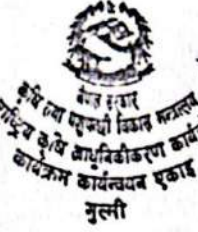 नेपाल सरकार
कृषि तथा पशुपन्छी विकास मन्त्रालय
कृषि आधुनिकीकरण
कार्यक्रम कार्यन्वयन एकाइ
गुल्मी